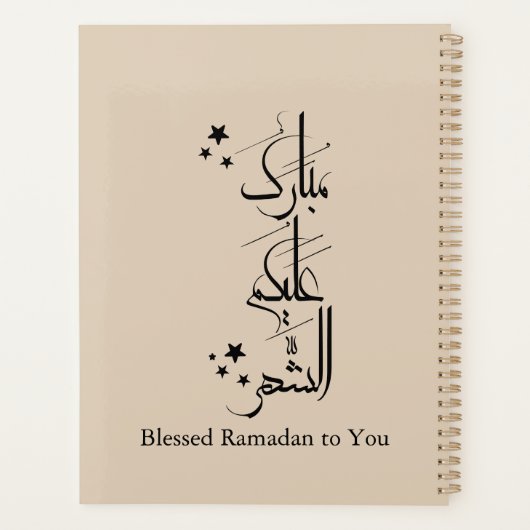 مبارك
عليكم
الشهر
Blessed Ramadan to You